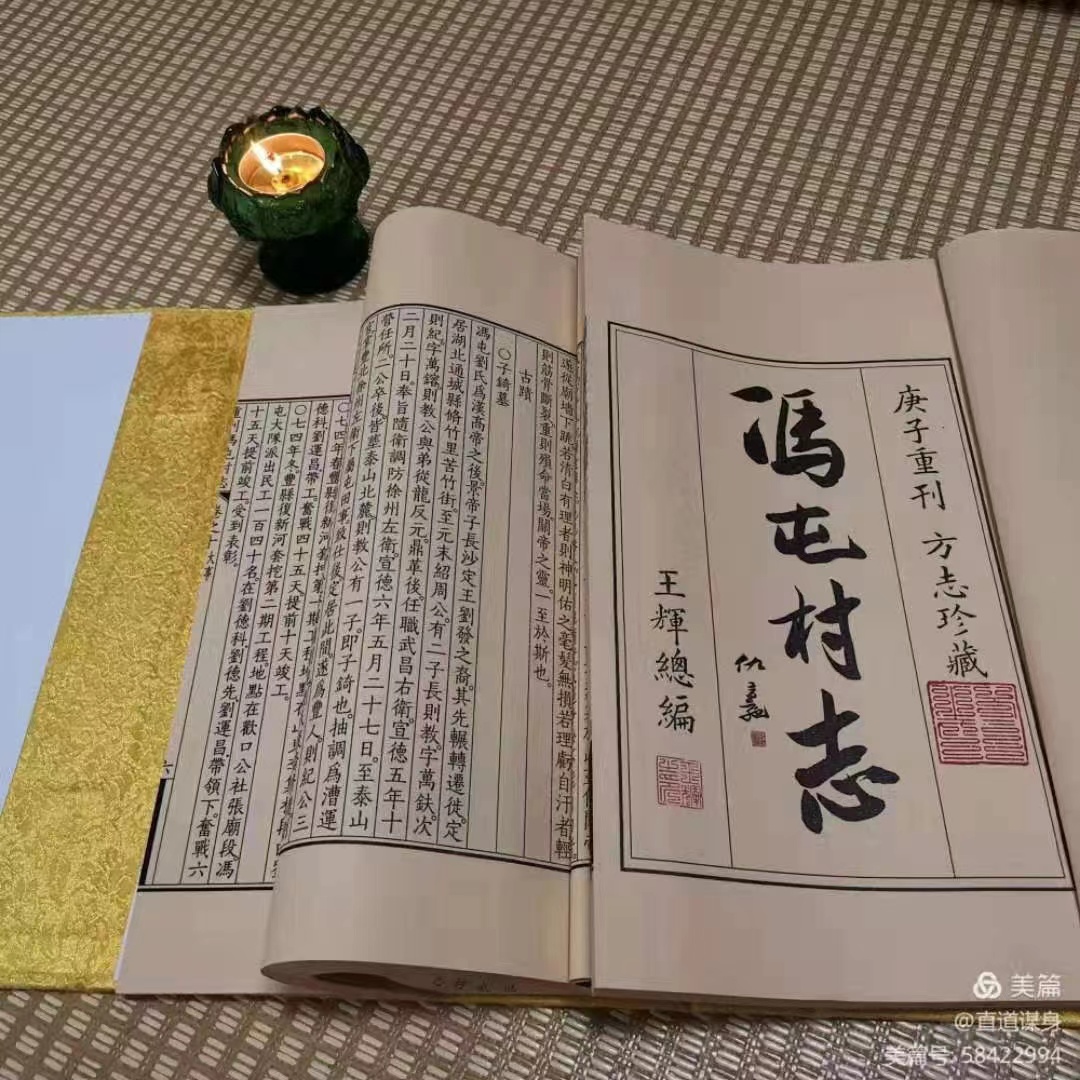 庚子重刊 方志珍藏
馮屯村志
仇高
王輝總編
從廟墻下跪若清白有理者則神明佑之毫髮無損若理虧自汗者輕
則筋骨斷裂重則殞命當場關帝之靈一至於斯也。
古蹟
〇子錡墓
馮屯劉氏爲漢高帝之後景帝子長沙定王劉發之裔其先輾轉遷徙定
居湖北通城縣脩竹里苦竹街至元末紹周公有二子長則教字萬鈇次
則紀字萬鎔則教公與弟從龍反元鼎革後任職武昌右衛宣德五年十
二月二十日奉旨隨衛調防徐州左衛宣德六年五月二十七日至泰山
營任所二公卒後皆塟泰山北麓則教公有一子即子錡也抽調爲漕運
致仕後定居此間遂爲豐人則紀公三
〇七四年春豐縣復新河
德科劉運昌帶工奮戰四十五天提前十天竣工。
〇七四年冬豐縣復新河套挖第二期工程地點在歡口公社張廟段馮
屯大隊派出民工一百四十名在劉德科劉德先劉運昌帶領下奮戰六
十五天提前竣工受到表彰。
重刊馮屯村志 卷之十大事
六
美篇
@直道谋身
美篇号 58422994